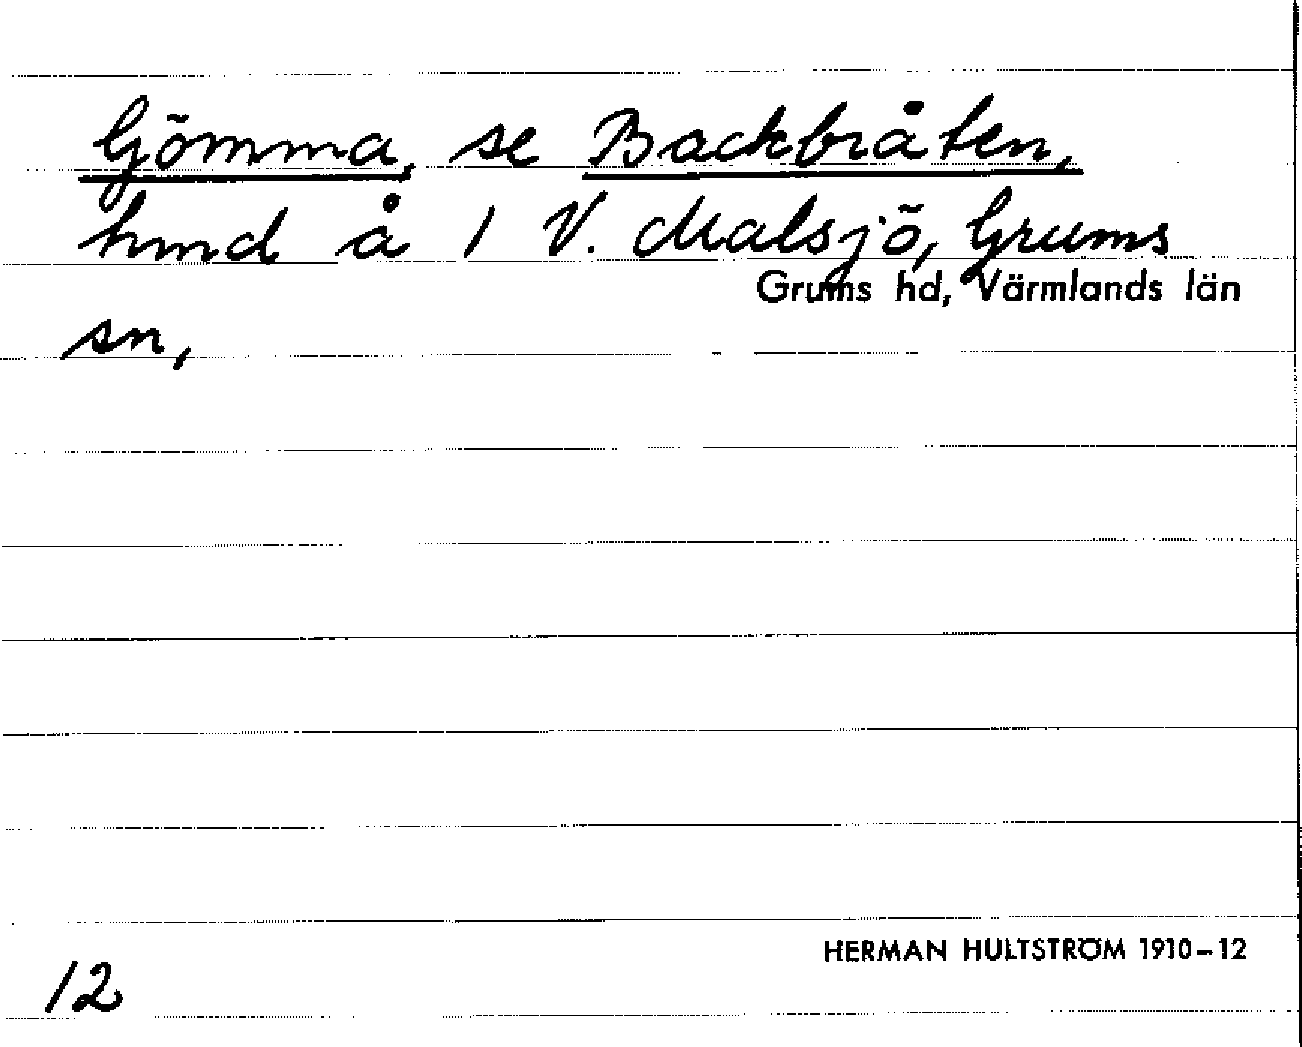 Gömma, se Backbråten,
hmd å 1 V. Malsjö, Grums
Grums hd, Värmlands län
sn,
HERMAN HULTSTRÖM 1910–12
12